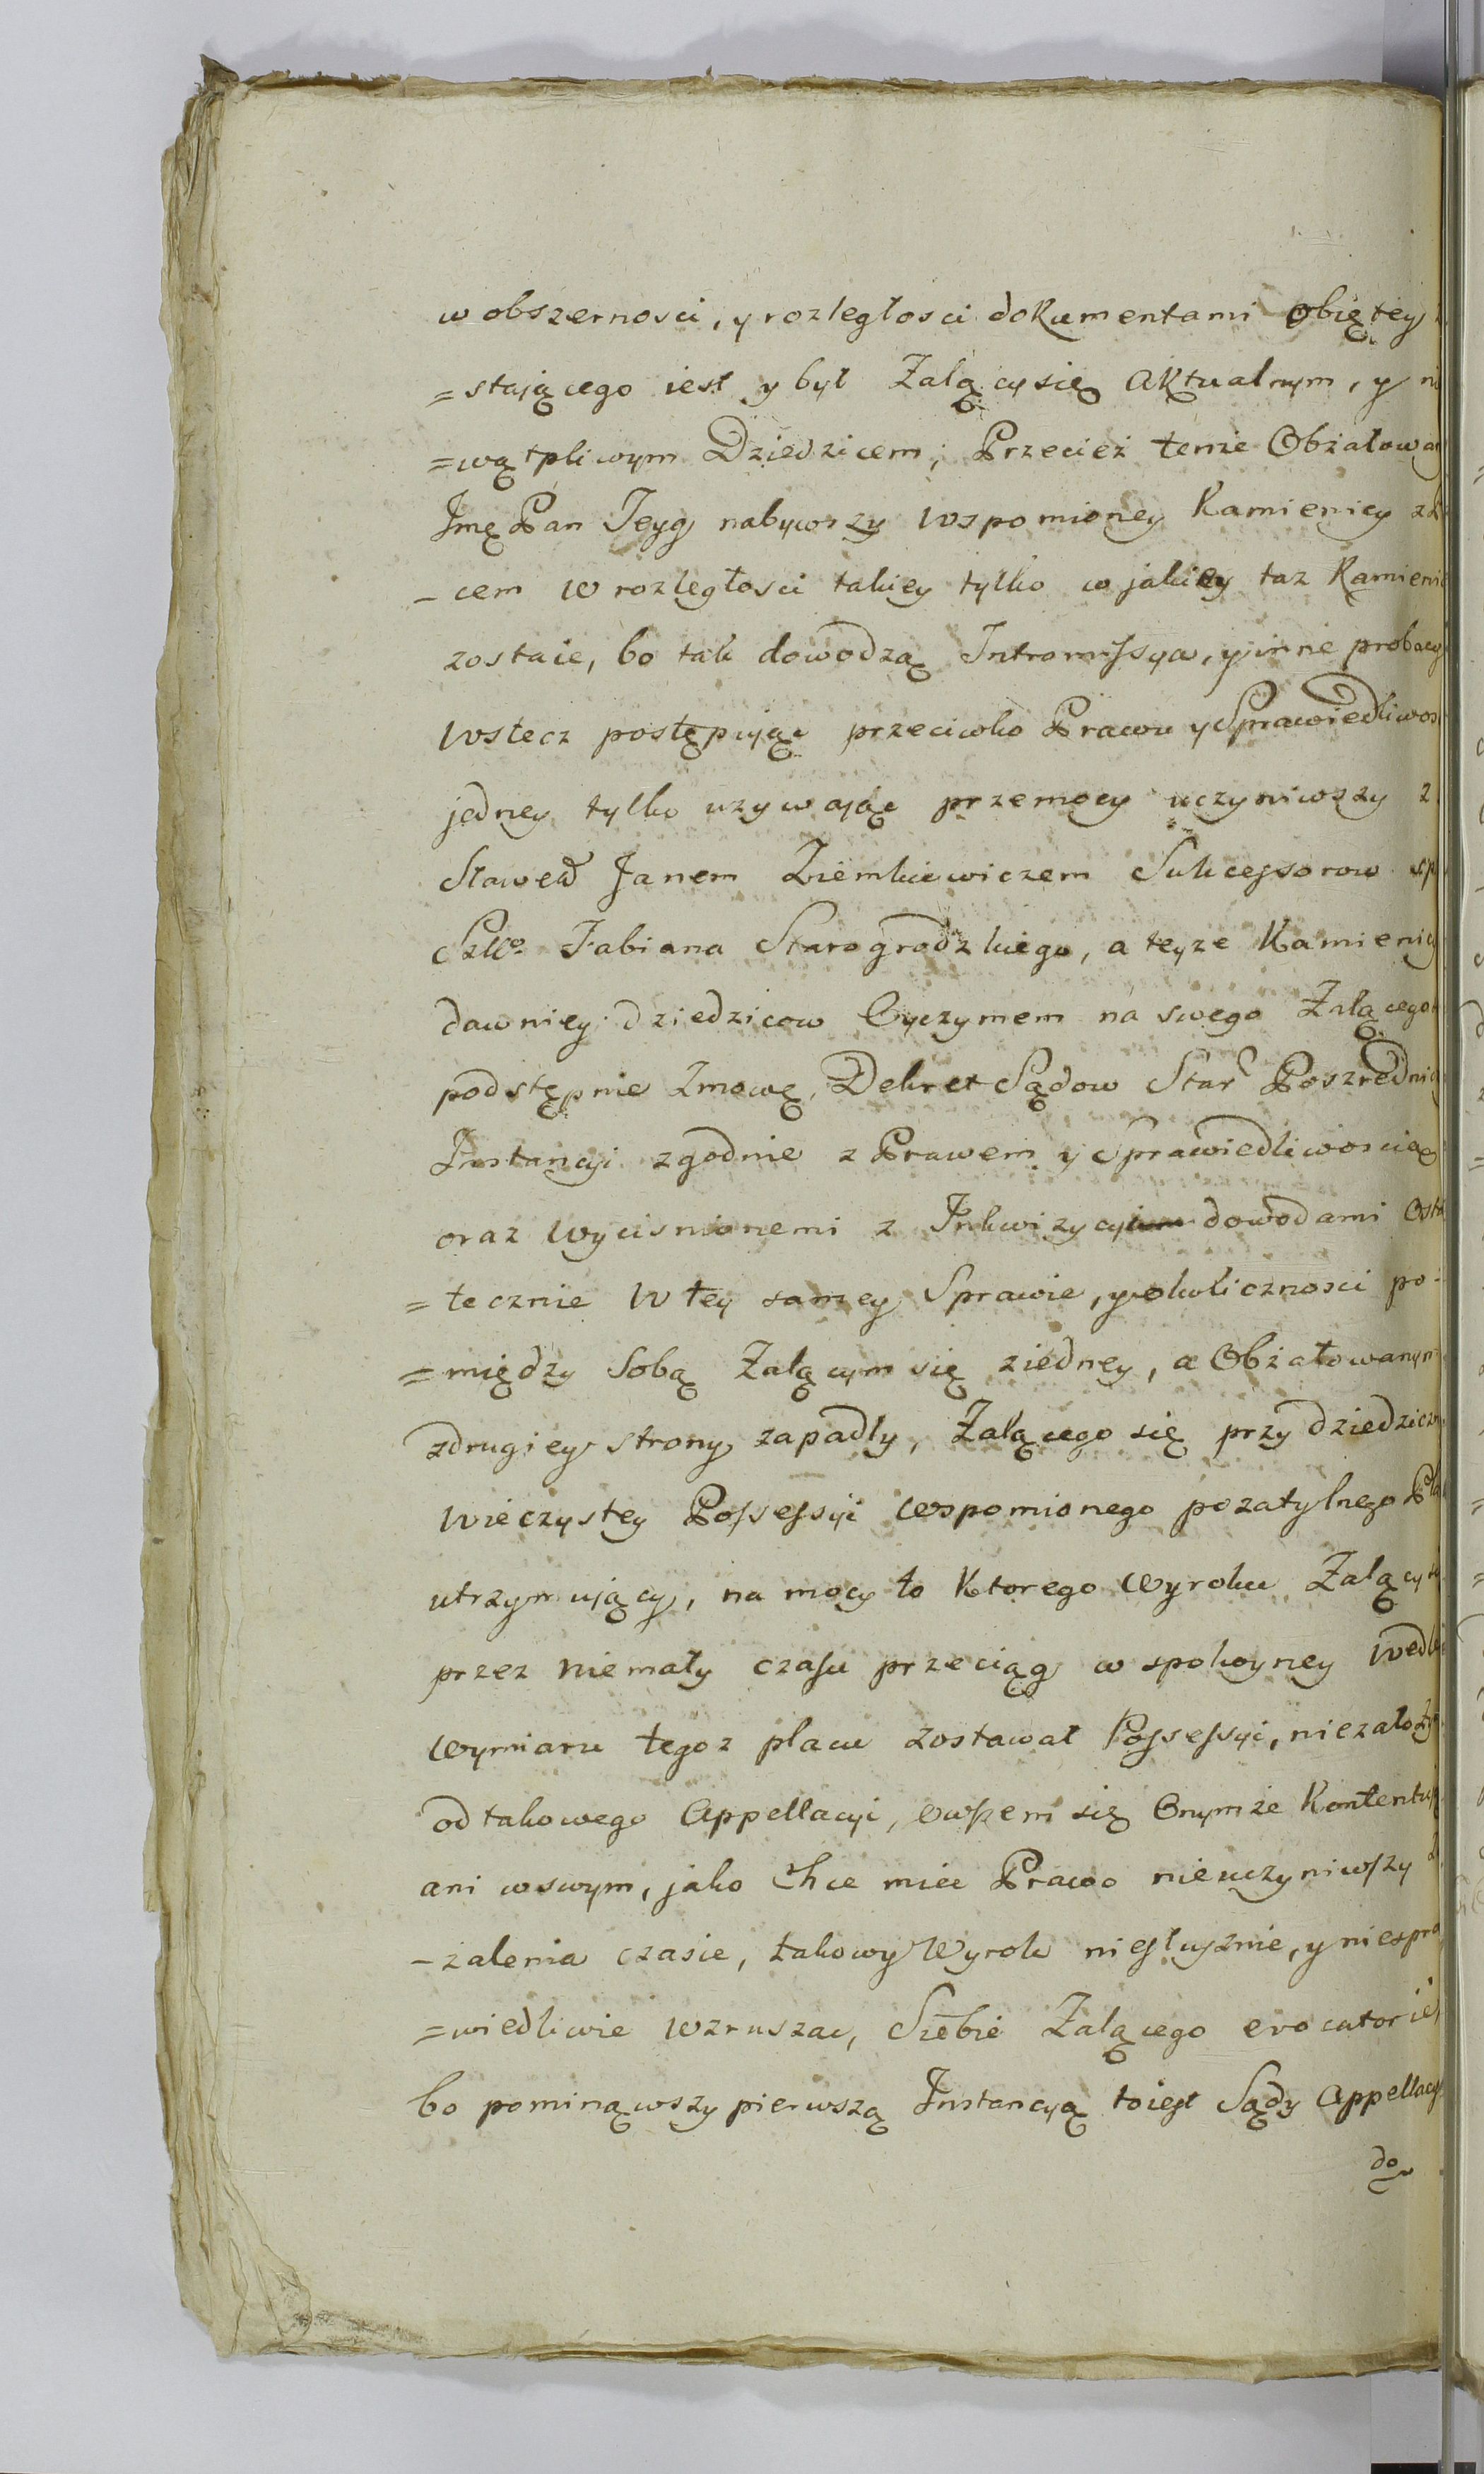 w obszernosci, y rozległosci dokumentami obiętey
=stającego iest y był Zalący się Aktualnym, y ni
=wątpliwym Dziedzicem; Przecież tenże Obżałowa
Jmę Pan Teyg nabywszy wspomioney Kamienicy z
-cem w rozległosci takiey tylko w jakiey taz Kamieni
zostaie, bo tak dowodzą Intromissya, y inne probacy
wstecz postępując przeciwko Prawu y Sprawiedliwos
jedney tylko uzywając przemocy uczyniwszy z
Sławetd Janem Ziemkiewiczem Sukcessorow
Szlo Fabiana Starogrodzkiego, a teyze Kamienicy
dawniey dziedzicow Oyczymem na swego Zalącego
podstępnie Zmowę, Dekret Sądow Star Poszrednicy
Instancyi zgodnie z Prawem y Sprawiedliwoscią
oraz wycisnionemi z Inkwizycyi dowodami Ost
=tecznie w tey samey Sprawie, y okolicznosci po-
=między Sobą Zalącym się ziedney, a Obżałowanym
zdrugiey strony zapadły, Zalącego się przy dziedziczn
wieczystey Possessyi wspomionego pozatylnego Pla
utrzymujący, na mocy to Ktorego Wyroku Zalący
przez niemały czasu przeciąg w spokoyney wedle
wymiaru tegoz placu zostawał Possessyi, niezałozy
od takowego Appellacyi, owszem się Onymże Kontentu
ani wswym, jako Chce miec Prawo nieuczyniwszy
-zalenia czasie, takowy Wyrok niesłusznie, y niespra
=wiedliwie wzruszac, Siebie Zalącego evocatorie,
bo pominąwszy pierwszą Instancyą toiest Sądy Appellacy
do